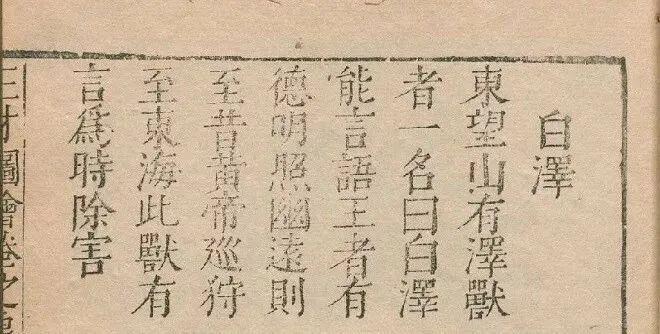 白澤
東望山有澤獸
者一名曰白澤
能言語王者有
德明照幽遠則
至昔黃帝巡狩
至東海此獸有
言爲時除害
三才圖會卷之